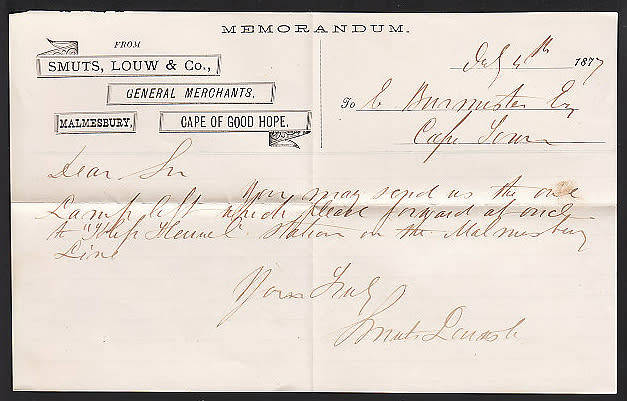 MEMORANDUM.
FROM
SMUTS, LOUW & Co.,
GENERAL MERCHANTS,
MALMESBURY,
CAPE OF GOOD HOPE.
July 4th 1877
To C Burmester Esq
Cape Town
Dear Sir
You may send us the one
Lamp left which please forward at once
to "Klip Heuvel" Station on the Malmesbury
Line
Yours Truly
Smuts Louw & Co